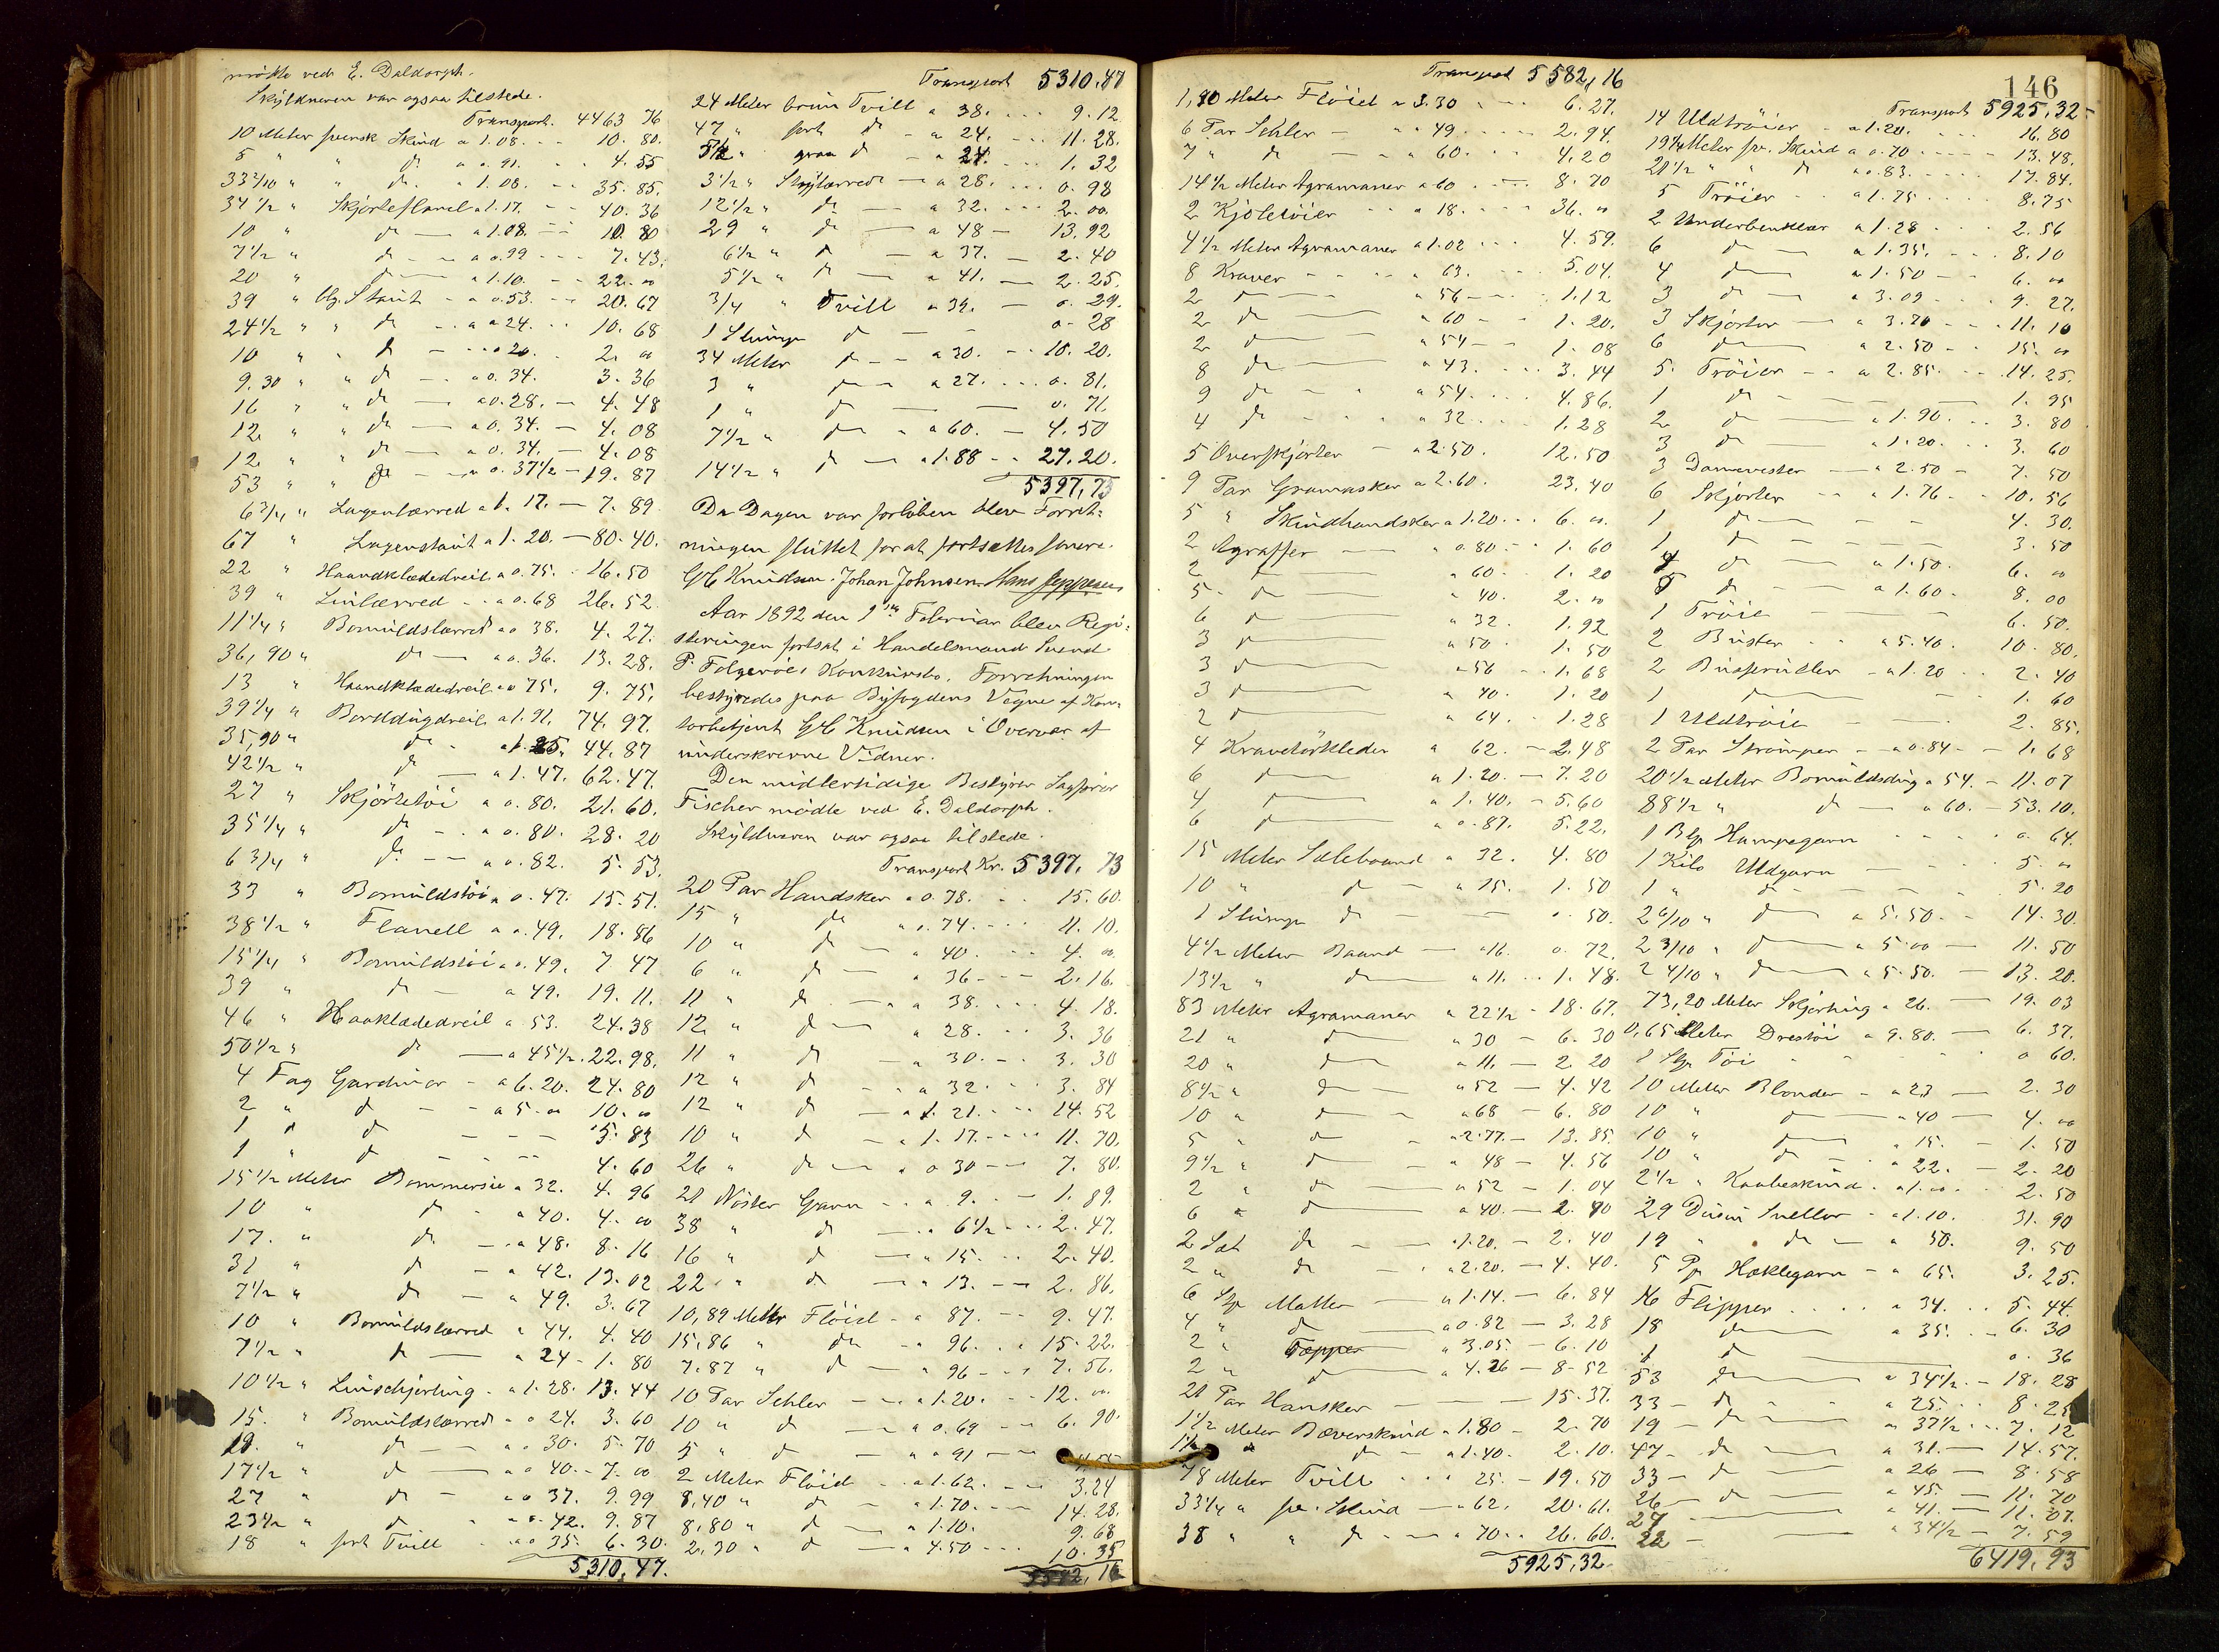 mødte ved E. Daldorph.
Skyldneren var ogsaa tilstede.
Transport. 4463 76
10 Meter svensk Skind a 1.08. 10.80.
5 " " do a 0.91. 4.55
33 2/10 " " do. a 1.08. 35.85.
34 1/2 " Skjorteflanel a 1.17. 40.36
10 " do a 1.08. 10.80
7 1/2 " do a 0.99 7.43.
20 " do a 1.10. 22.00
39 " blg. Stout a 0.53. 20.67
24 1/2 " " do a 24. 10.68
10 " " do a 20. 2.00
9.30 " " do a 0.34. 3.36
16 " " do a 0.28. 4.48
12 " " do a 0.34. 4.08
12 " " do a 0.34. 4.08
53 " " do a 0.37 1/2 19.87
6 3/4 " Lagenlærred a 1.17. 7.89
67 " Lagenstout a 1.20. 80.40.
22 " Haandklædedreil a 0.75. 16.50
39 " Linlærred a 0.68 26.52
11 1/4 " Bomuldslærred a 0 38. 4.27.
36,90 " do a 0.36. 13.28.
13 " Haandklædedreil a 0 75. 9.75.
39 1/4 " Borddugdreil a 1.91. 74.97.
35,90 " do a 1.25. 44.87
42 1/2 " do a 1.47. 62.47.
27 " Skjørtetøi a 0.80. 21.60.
35 1/4 " do a 0.80. 28.20
6 3/4 " do a 0.82. 5.53.
33 " Bomuldstøi a 0.47. 15.51.
38 1/2 " Flanell a 0.49. 18.86
15 1/4 " Bomuldstøi a 0.49. 7.47
39 " do a 49. 19.11.
46 " Haaklædedreil a 53. 24.38
50 1/2 " do a 45 1/2. 22.98.
4 Fag Gardiner a 6.20. 24.80
2 " do a 5.00 10.00
1 " do 5.83
1 " do 4.60
15 1/2 Meter Bommersie a 32. 4.96
10 " do a 40. 4.00
17. " do a 48. 8.16
31 " do a 42. 13.02
7 1/2 " do a 49. 3.67
10 " Bomuldslærred a 44. 4.40
7 1/2 " do a 24 1.80
10 1/2 " Linschjerting a 1.28. 13.44
15. " Bomuldslærred a 0 24. 3.60
19. " do a 0 30. 5.70
17 1/2 " do a 0 40. 7.00
27 " do a 0 37. 9.99
23 1/2 " do a 0.42. 9.87
18 " sort Tvill a 0 35. 6.30.
5310,47.
Transport 5310.47
24 Meter brun Tvill a 38. 9.12
47 " sort do a 24. 11.28.
5 1/2 " graa do a 24. 1.32
3 1/2 " Seglærred a 28. 0.98
12 1/2 " do a 32. 2.00.
29 " do a 48 13.92
6 1/2 " do a 37. 2.40
5 1/2 " do a 41. 2.25.
3/4 " Tvill a 39. 0.29.
1 Stump do 0.28
34 Meter do a 30. 10.20.
3 " do a 27. 0.81.
1 " do 0.71.
7 1/2 " do a 60. 4.50
14 1/2 " do a 1.88 27.20.
5397,73
Da Dagen var forløben blev Forret-
ningen sluttet for at fortsættes senere.
GC Knudsen. Johan Johnsen. Hans Jeppesen
Aar 1892 den 1ste Februar blev Regi-
streringen fortsat i Handelsmand Svend
P. Folgerøes Konkursbo. Forretningen
bestyredes paa Byfogdens Vegne af Kon-
torbetjent GC Knudsen i Overvær af
underskrevne Vidner.
Den midlertidige Bestyrer Sagfører
Fischer mødte ved E. Daldorph.
Skyldneren var ogsaa tilstede.
Transport Kr. 5397,73
20 Par Handsker a 0.78. 15.60.
15 " do a 0.74. 11.10.
10 " do a 40 4.00.
6 " do a 36 2.16.
11 " do a 38. 4.18.
12 " do a 28. 3.36
11 " do a 30. 3.30
12 " do a 32. 3.84
12 " do a 1.21. 14.52
10 " do a 1.17. 11.70.
26 " do a 0 30 7.80.
21 Nøster Garn a 9. 1.89
38 " do a 6 1/2 2.47.
16 " do a 15. 2.40.
22 " do a 13. 2.86.
10,89 Meter Fløiel a 87. 9.47.
15,86 " do a 96. 15.22.
7.87 " do a 96 7.56.
10 Par Sehler a 1.20. 12.00
10 " do a 0.69 6.90.
5 " do a 91
2 Meter Fløiel a 1.62. 3.24
8,40 " do a 1.70. 14.28.
8,80 " do a 1.10. 9.68
2,30 " do a 4.50 10.35
5582,16
Transport 5582,16
1,90 Meter Fløiel a 3.30 6.27.
6 Par Sehler a 49. 2.94.
7 " do a 60. 4.20
14 1/2 Meter Agramaner a 60 8.70
2 Kjoletøier a 18. 36.00
4 1/2 Meter Agramaner a 1.02 4.59.
8 Kraver a 63. 5.04.
2 do a 56 1.12
2 do a 60 1.20.
2 do a 54 1.08
8 do a 43. 3.44
9 do a 54. 4.86.
4 do a 32 1.28
5 Overskjorter a 2.50. 12.50
9 Par Gramasker a 2.60. 23.40
5 " Skindhandsker a 1.20 6.00.
2 Agraffer a 0.80 1.60
2 do a 60 1.20
5 do a 40. 2.00
6 do a 32. 1.92
3 do a 50 1.50
3 do a 56 1.68
3 do a 40. 1.20
2 do a 64. 1.28
4 Kravetørkleder a 62. 2.48
6 do a 1.20. 7.20
4 do a 1.40. 5.60
6 do a 0.87. 5.22.
15 Meter Sælebaand a 32. 4.80
10 " do a 15. 1.50
1 Stump do 0.50.
4 1/2 Meter Baand a 16. 0.72.
13 1/2 " do a 11. 1.48.
83 Meter Agramaner a 22 1/2 18.67.
21 " do a 30 6.30
20 " do a 11. 2.20
8 1/2 " do a 52 4.42
10 " do a 68 6.80
5 " do a 2.77. 13.85.
9 1/2 " do a 48 4.56
2 " do a 52 1.04
6 " do a 40. 2.40
2 Sæt do a 1.20. 2.40
2 " do a 2.20. 4.40.
6 Stp Matter a 1.14. 6.84
4 " do a 0.82 3.28
2 " Tepper a 3.05. 6.10
2 " do a 4.26 8.52
21 Par Hansker 15.37.
1 1/2 Meter Bæverskind a 1.80 2.70
1 1/2 " do a 1.40. 2.10.
78 Meter Tvill a 25. 19.50
33 1/4 " sv. Skind a 62. 20.61.
38 " " do a 70. 26.60.
5925,32.
146
Transport 5925,32
14 Uldtrøier a 1.20. 16.80
19 1/4 Meter sv. Skind a 0.70 13.48.
21 1/2 " " do a 0.83. 17.84.
5 Trøier a 1.75 8.75
2 Underbenklær a 1.28 2.56
6 do a 1.35. 8.10
4 do a 1.50 6.00
3 do a 3.09 9.27.
3 Skjorter a 3.70 11.10
6 do a 2.50 15.00
5. Trøier a 2.85. 14.25.
1 do 1.95
2 do a 1.90. 3.80
3 do a 1.20. 3.60
3 Damevester a 2.50 7.50
6 Skjorter a 1.76. 10.56
1 do 4.30.
1 do 3.50
4 do a 1.50. 6.00
5 do a 1.60. 8.00
1 Trøie 6.50.
2 Buster a 5.40. 10.80.
2 Busseruller a 1.20 2.40
1 do 1.60
1 Uldtrøie 2.85.
2 Par Strømper a 0.84 1.68
20 1/2 Meter Bomuldsdug a 54. 11.07
88 1/2 " do a 60. 53.10.
1 Blp Hampegarn 0.64.
1 Kilo Uldgarn 5.00
1 " do 5.20
2 6/10 " do a 5.50. 14.30.
2 3/10 " do a 5.00 11.50
2 4/10 " do a 5.50. 13.20.
73,20 Meter Skjerting a 26. 19.03
0,65 Meter Drestøi a 9.80. 6.37.
1 Stp Tøi 0 60.
10 Meter Blonder a 23 2.30
10 " do a 40 4.00
10 " do a 15. 1.50
10 " do a 22. 2.20
2 1/2 " Kaabeskind a 1.00. 2.50
29 Dusin Sneller a 1.10. 31.90
19 " do a 50. 9.50
5 Pp Heklegarn a 65. 3.25.
16 Flipper a 34. 5.44.
18 do a 35. 6.30
1 do 0.36
53 do a 34 1/2. 18.28
33 do a 25. 8.25
19 do a 37 1/2 7.12
47 do a 31. 14.57.
33 do a 26 8.58
26 do a 45. 11.70
27 a 41. 11.07.
22 a 34 1/2 7.59
6419,93